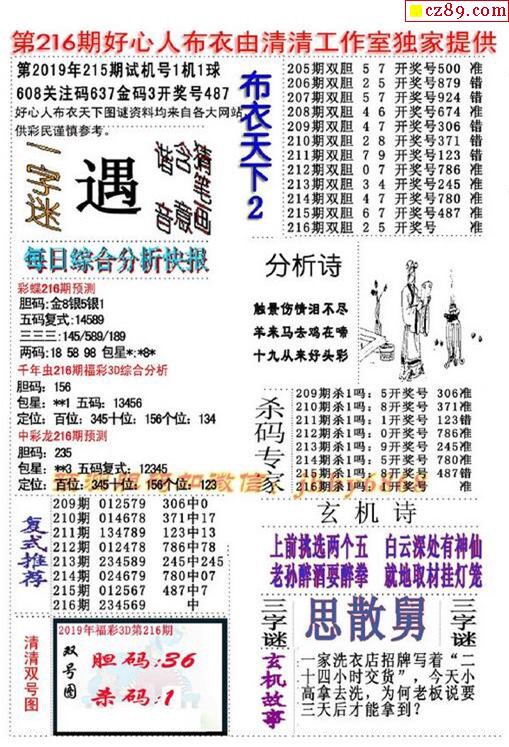 cz89.com
第216期好心人布衣由清清工作室独家提供
第2019年215期试机号1机1球
608关注码637金码3开奖号487
好心人布衣天下图谜资料均来自各大网站
供彩民谨慎参考。
一字谜
遇
猜笔画
含意
谐音
布衣天下2
205期双胆 5 7 开奖号500 准
206期双胆 2 5 开奖号879 错
207期双胆 5 7 开奖号924 错
208期双胆 4 6 开奖号674 准
209期双胆 4 7 开奖号306 错
210期双胆 2 8 开奖号371 错
211期双胆 7 9 开奖号123 错
212期双胆 0 7 开奖号786 准
213期双胆 3 4 开奖号245 准
214期双胆 4 7 开奖号780 准
215期双胆 6 7 开奖号487 准
216期双胆 2 5 开奖号 准
每日综合分析快报
彩蝶216期预测
胆码:金8银5银1
五码复式:14589
三三三:145/589/189
两码:18 58 98 包星*:*8*
千年虫216期福彩3D综合分析
胆码: 156
包星: **1 五码: 13456
定位: 百位: 345十位: 156个位: 134
中彩龙216期预测
胆码: 235
包星: **3 五码复式: 12345
定位: 百位: 345十位: 156个位: 123
分析诗
触景伤情泪不尽
羊来马去鸡在啼
十九从来好头彩
杀码专家
209期杀1吗: 5开奖号 306准
210期杀1吗: 8开奖号 371准
211期杀1吗: 7开奖号 123准
212期杀1吗: 0开奖号 786准
213期杀1吗: 3开奖号 245准
214期杀1吗: 5开奖号 780准
215期杀1吗: 8开奖号 487错
216期杀1吗: 1开奖号 准
复式推荐
209期 012579 306中0
210期 014678 371中17
211期 134789 123中13
212期 012478 786中78
213期 234589 245中245
214期 024679 780中07
215期 012567 487中7
216期 234569 中
玄机诗
上前挑选两个五 白云深处有神仙
老孙醉酒要醉拳 就地取材挂灯笼
三字谜
思散舅
三字谜
清清双号图
2019年福彩3D第216期
双号图
胆码:36
杀码:1
玄机故事
一家洗衣店招牌写着“二
十四小时交货”,今天小
高拿去洗,为何老板说要
三天后才能拿到?